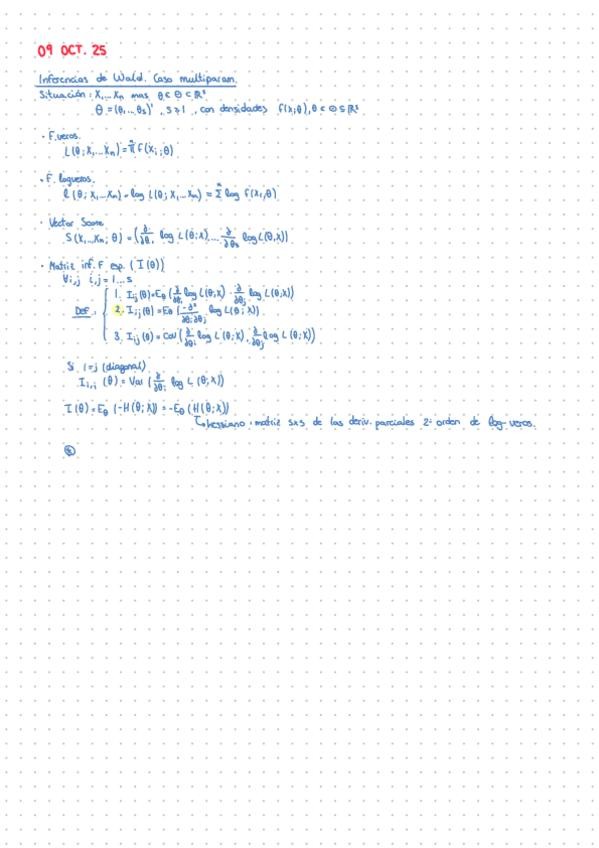 09 OCT. 25
Inferencias de Wald. Caso multiparam.
Situación: X₁...Xₙ mas θ ∈ Θ ⊂ ℝˢ
θ = (θ₁...θₛ)', s>1, con densidades f(x;θ), θ ∈ Θ ⊆ ℝˢ
· F.veros.
L(θ; X₁...Xₙ) = ∏ⁿ f(Xᵢ; θ)
· F. logveros.
ℓ(θ; X₁...Xₙ) = log L(θ; X₁...Xₙ) = Σⁿ log f(Xᵢ, θ)
· Vector Score
S(X₁...Xₙ; θ) = (∂/∂θ₁ log L(θ;X), ... ∂/∂θₛ log L(θ;X))
· Matriz inf. F esp. (I(θ))
∀i,j i,j = 1...s
1. Iᵢⱼ(θ) = E_θ (∂/∂θᵢ log L(θ;X) · ∂/∂θⱼ log L(θ;X))
Def: 2. Iᵢⱼ(θ) = E_θ (-∂²/∂θᵢ∂θⱼ log L(θ; X))
3. Iᵢⱼ(θ) = Cov (∂/∂θᵢ log L(θ;X), ∂/∂θⱼ log L(θ;X))
Si i=j (diagonal)
Iᵢ,ᵢ (θ) = Var (∂/∂θᵢ log L (θ;X))
I(θ) = E_θ (-H(θ;X)) = -E_θ (H(θ;X))
hessiano: matriz s×s de las deriv. parciales 2º orden de log-veros.